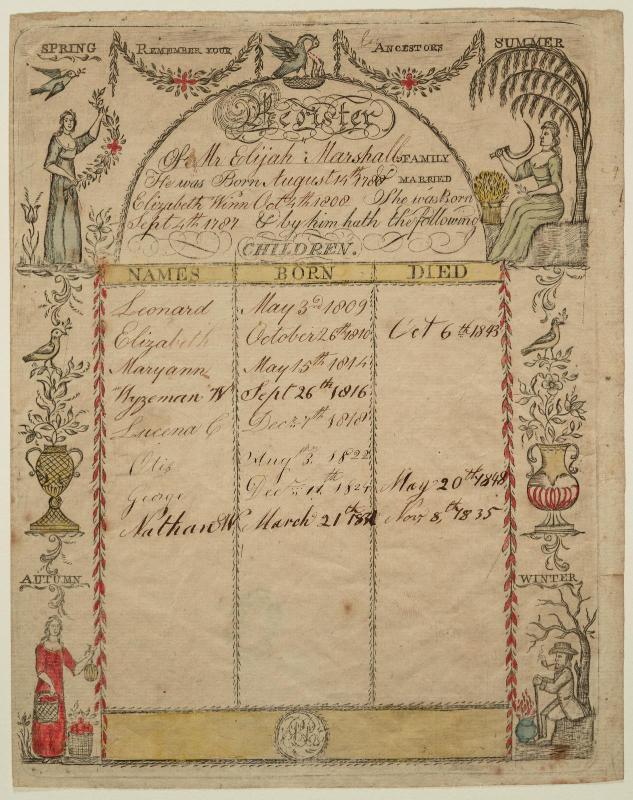 SPRING REMEMBER YOUR ANCESTORS SUMMER
Register
Of Mr Elijah Marshall FAMILY
He was Born August 14th 1786 & MARRIED
Elizabeth Winn Oct 4th 1808 She was Born
Sept 4th 1787 & by him hath the following
CHILDREN.
NAMES BORN DIED
Leonard May 3d 1809
Elizabeth October 26th 1810 Oct 6th 1843
Maryann May 15th 1814
Wyzeman W Sept 26th 1816
Lucena C Dec 7th 1818
Otis Aug 3 1822
George Dec 11th 1824 May 20th 1848
Nathan W March 21th Nov 8th 1835
AUTUMN WINTER